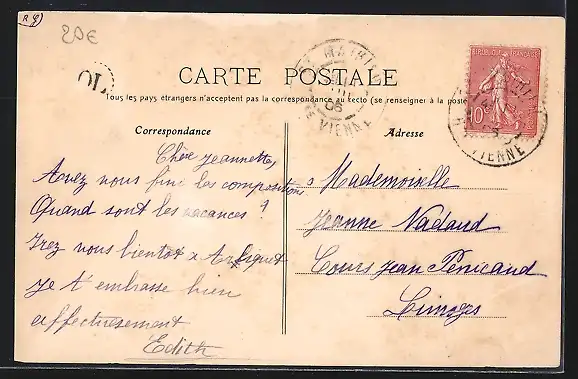 20€
OL
CARTE POSTALE
Tous les pays étrangers n'acceptent pas la correspondance au recto (se renseigner à la poste
RÉPUBLIQUE FRANÇAISE
10c
VIENNE
VIENNE
Correspondance
Adresse
Chère Jeannette,
Avez vous fini les compositions
Quand sont les vacances ?
Irez vous bientot a
Je t'embrasse bien
affectueusement
Edith
Mademoiselle
Jeanne Nadaud
Cours Jean Pénicaud
Limoges